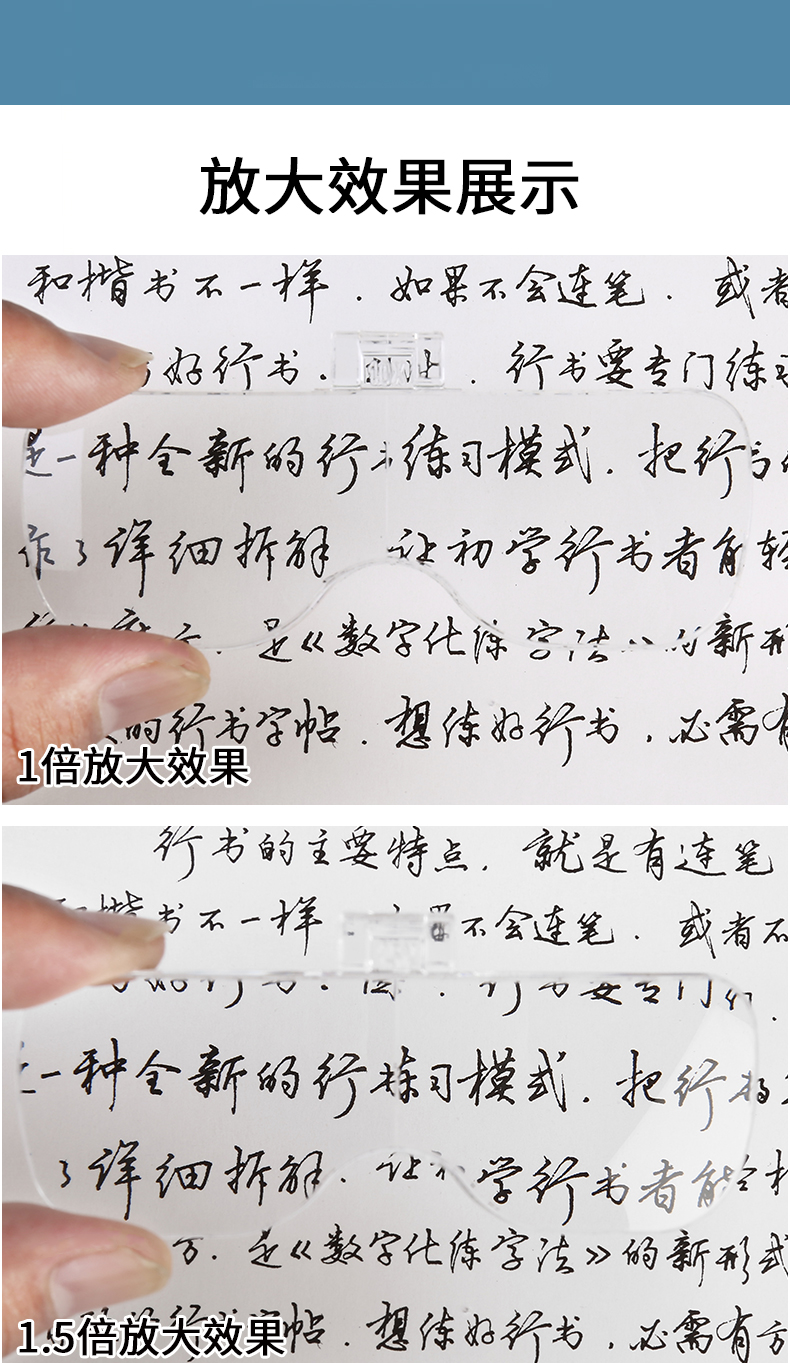 放大效果展示
和楷书不一样.如果不会连笔.或者
好行书. .行书要专门练习
是一种全新的行 练习模式.把行
作了详细拆解 让初学行书者 轻
是《数字化练字法 的新形
的行书字帖.想练好行书,必需有
1倍放大效果
行书的主要特点.就是有连笔
楷书不一样 不会连笔.或者不
行书要专门
一种全新的行 练习模式.把行
了详细拆解.让 学行书者能
方.是《数字化练字法》的新形式
字帖.想练好行书,必需有方
1.5倍放大效果